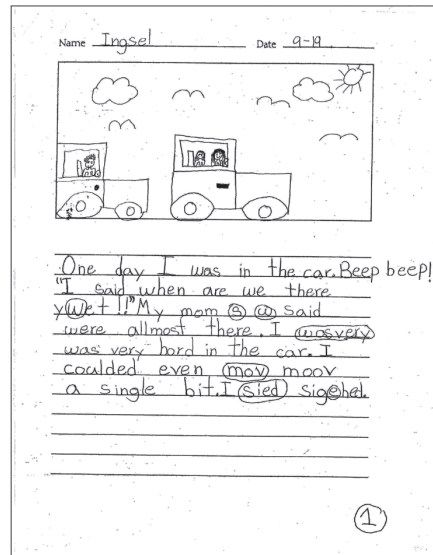 Name Ingsel Date 9-19
One day I was in the car. Beep beep!
"I said when are we there
ywet!!" My mom s w said
were allmost there. I wasvery
was very bord in the car. I
coulded even mov moov
a single bit. I sied sigehed.
1